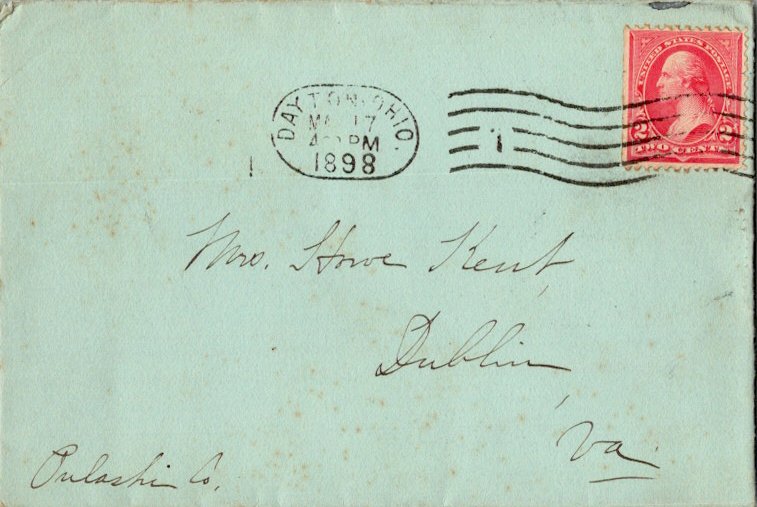 UNITED STATES POSTAGE
2 2
TWO CENTS
DAYTON, OHIO.
17
PM
1898
1
Mrs. Howe Kent,
Dublin,
Va.
Pulaski Co.